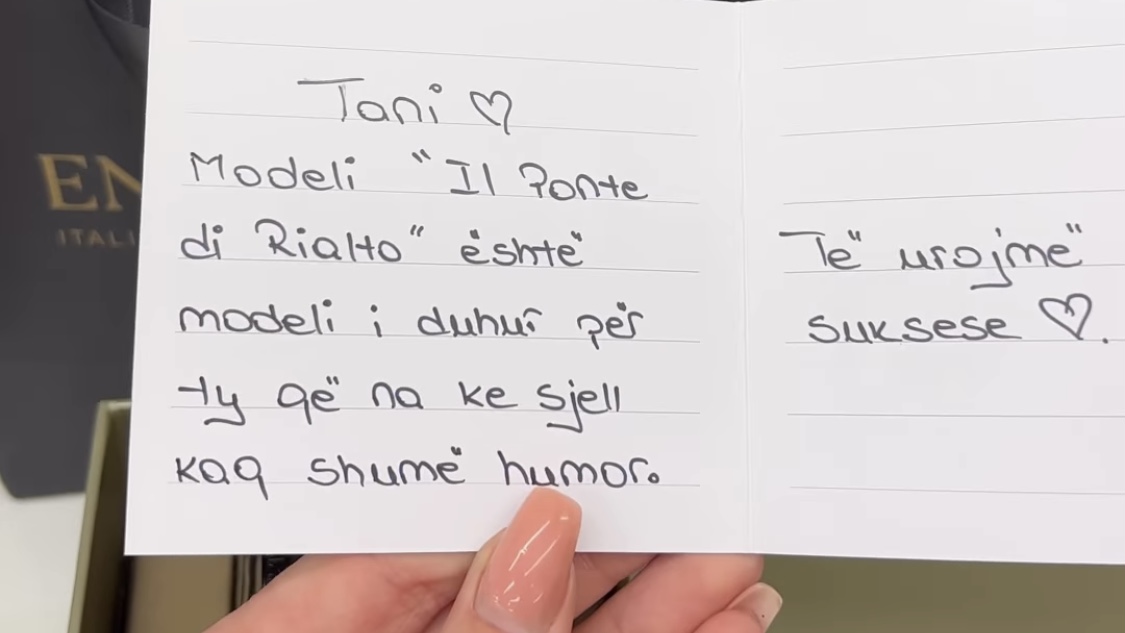 EN
ITALI
Tani ♡
Modeli "Il Ponte
di Rialto" është
modeli i duhur për
ty që na ke sjell
kaq shumë humor.
Të urojmë
suksese ♡.